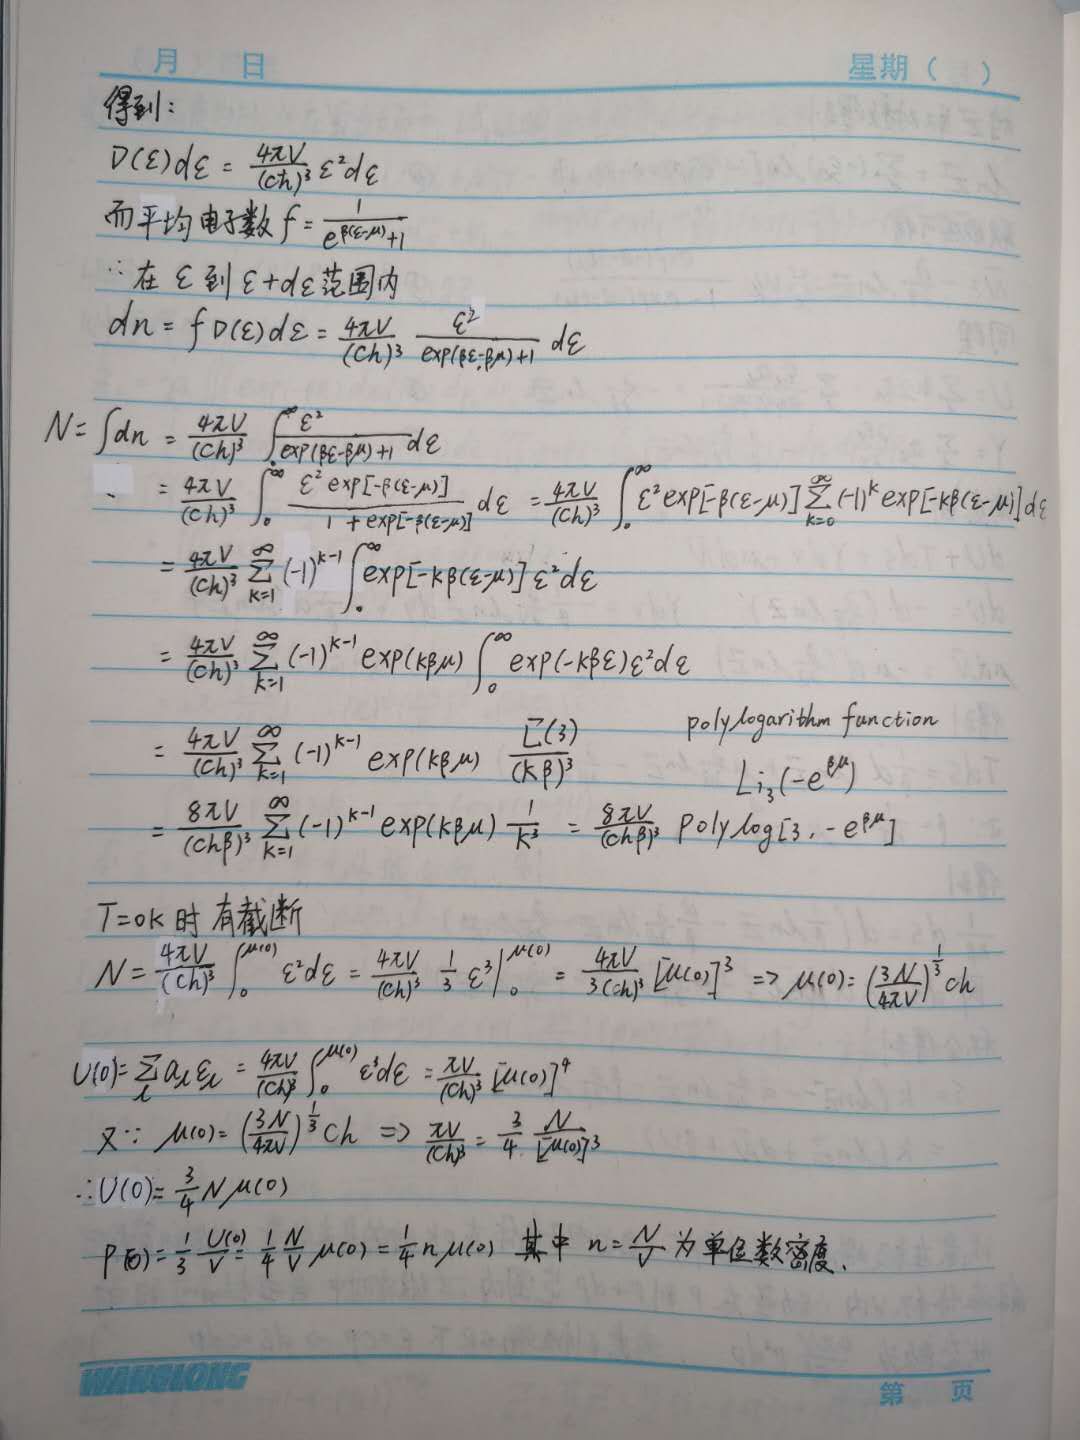 月 日 星期( )
得到:
D(ε)dε = \frac{4πV}{(ch)^3} ε^2 dε
而平均电子数 f = \frac{1}{e^{β(ε-μ)}+1}
∴ 在 ε 到 ε+dε 范围内
dn = f D(ε)dε = \frac{4πV}{(Ch)^3} \frac{ε^2}{exp(βε-βμ)+1} dε
N = ∫dn = \frac{4πV}{(Ch)^3} ∫_0^∞ \frac{ε^2}{exp(βε-βμ)+1} dε
= \frac{4πV}{(Ch)^3} ∫_0^∞ \frac{ε^2 exp[-β(ε-μ)]}{1+exp[-β(ε-μ)]} dε = \frac{4πV}{(Ch)^3} ∫_0^∞ ε^2 exp[-β(ε-μ)] \sum_{k=0}^∞ (-1)^k exp[-kβ(ε-μ)] dε
= \frac{4πV}{(Ch)^3} \sum_{k=1}^∞ (-1)^{k-1} ∫_0^∞ exp[-kβ(ε-μ)] ε^2 dε
= \frac{4πV}{(Ch)^3} \sum_{k=1}^∞ (-1)^{k-1} exp(kβμ) ∫_0^∞ exp(-kβε) ε^2 dε
polylogarithm function
= \frac{4πV}{(Ch)^3} \sum_{k=1}^∞ (-1)^{k-1} exp(kβμ) \frac{Γ(3)}{(kβ)^3}
Li_3(-e^{βμ})
= \frac{8πV}{(Chβ)^3} \sum_{k=1}^∞ (-1)^{k-1} exp(kβμ) \frac{1}{k^3} = \frac{8πV}{(Chβ)^3} polylog[3, -e^{βμ}]
T=0K 时 有截断
N = \frac{4πV}{(Ch)^3} ∫_0^{μ(0)} ε^2 dε = \frac{4πV}{(Ch)^3} \frac{1}{3} ε^3 |_0^{μ(0)} = \frac{4πV}{3(Ch)^3} [μ(0)]^3 => μ(0) = (\frac{3N}{4πV})^{\frac{1}{3}} ch
U(0) = \sum_l a_l ε_l = \frac{4πV}{(Ch)^3} ∫_0^{μ(0)} ε^3 dε = \frac{πV}{(Ch)^3} [μ(0)]^4
又∵ μ(0) = (\frac{3N}{4πV})^{\frac{1}{3}} Ch => \frac{πV}{(Ch)^3} = \frac{3}{4} \frac{N}{[μ(0)]^3}
∴ U(0) = \frac{3}{4} N μ(0)
P(0) = \frac{1}{3} \frac{U(0)}{V} = \frac{1}{4} \frac{N}{V} μ(0) = \frac{1}{4} n μ(0) 其中 n = \frac{N}{V} 为单位数密度.
WANGLONG 第 页